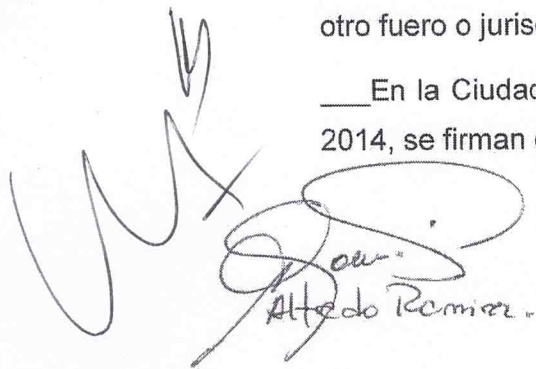 otro fuero o juris
___En la Ciudad
2014, se firman
Alfredo Ramirez.